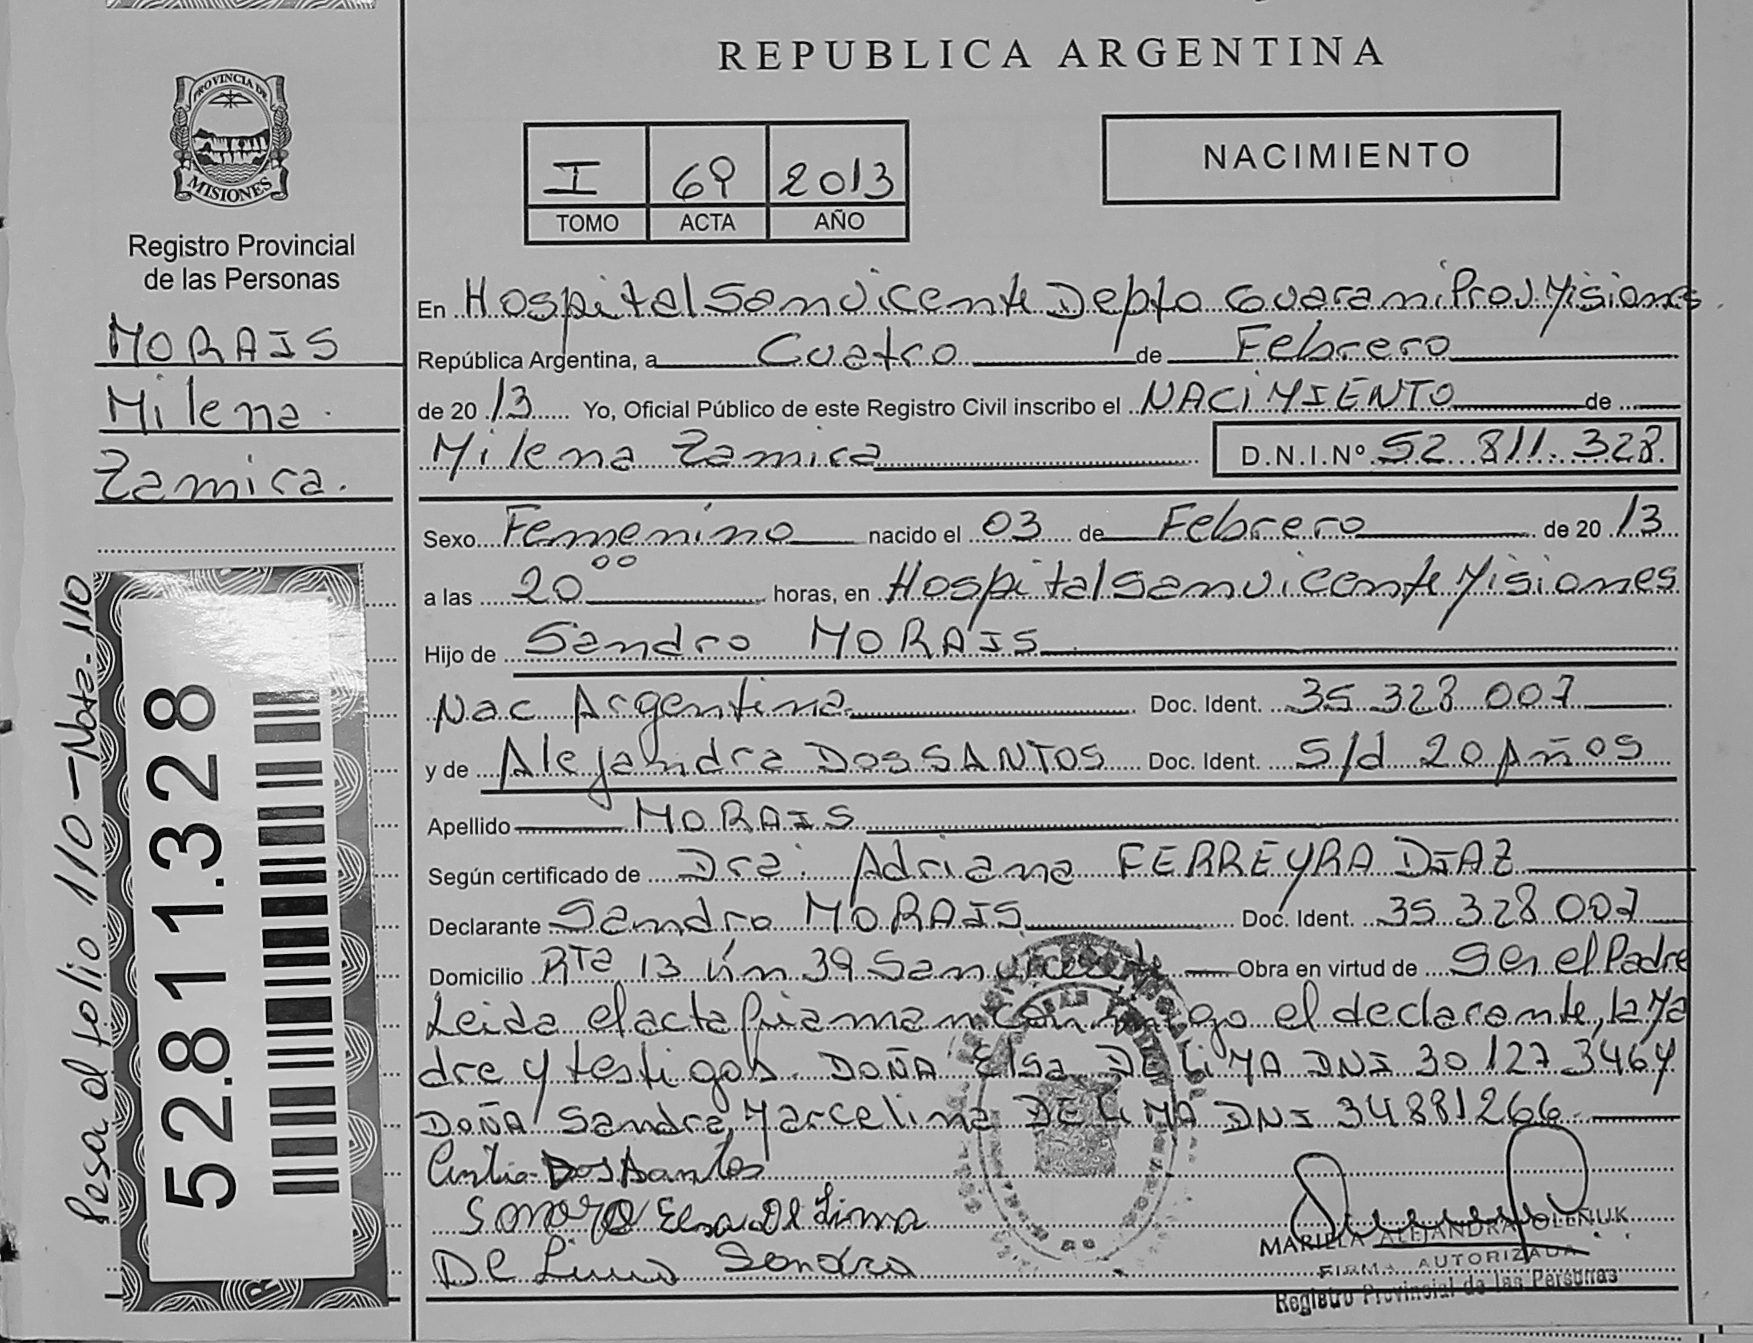 REPUBLICA ARGENTINA
PROVINCIA DE
MISIONES
Registro Provincial
de las Personas
MORAIS
Milena
Zamira.
Pasa al folio 110 - Nota 110
52.811.328
I 69 2013
TOMO ACTA AÑO
NACIMIENTO
En Hospital San Vicente Depto Guarani Prov. Misiones.
República Argentina, a Cuatro de Febrero
de 2013 Yo, Oficial Público de este Registro Civil inscribo el NACIMIENTO de
Milena Zamira D.N.I.Nº 52.811.328.
Sexo Femenino nacido el 03 de Febrero de 2013
a las 20 00 horas, en Hospital San Vicente Misiones
Hijo de Sandro MORAIS
Nac Argentina Doc. Ident. 35.328.007
y de Alejandra DOS SANTOS Doc. Ident. S/d 20 Años
Apellido MORAIS
Según certificado de Dra. Adriana FERREYRA DIAZ
Declarante Sandro MORAIS Doc. Ident. 35.328.007
Domicilio RTa 13 Km 39 San Vicente Obra en virtud de Ser el Padre
Leida el acta firman conmigo el declarante, la Ma
dre y testigos. DOÑA Elsa DE LIMA DNI 30.127.346 y
DOÑA Sandra Marcelina DE LIMA DNI 34881266.
Dos Santos
Elsa De Lima
De Lima Sandra
MARIELA ALEJANDRA OLEÑUK
FIRMA AUTORIZADA
Registro Provincial de las Personas